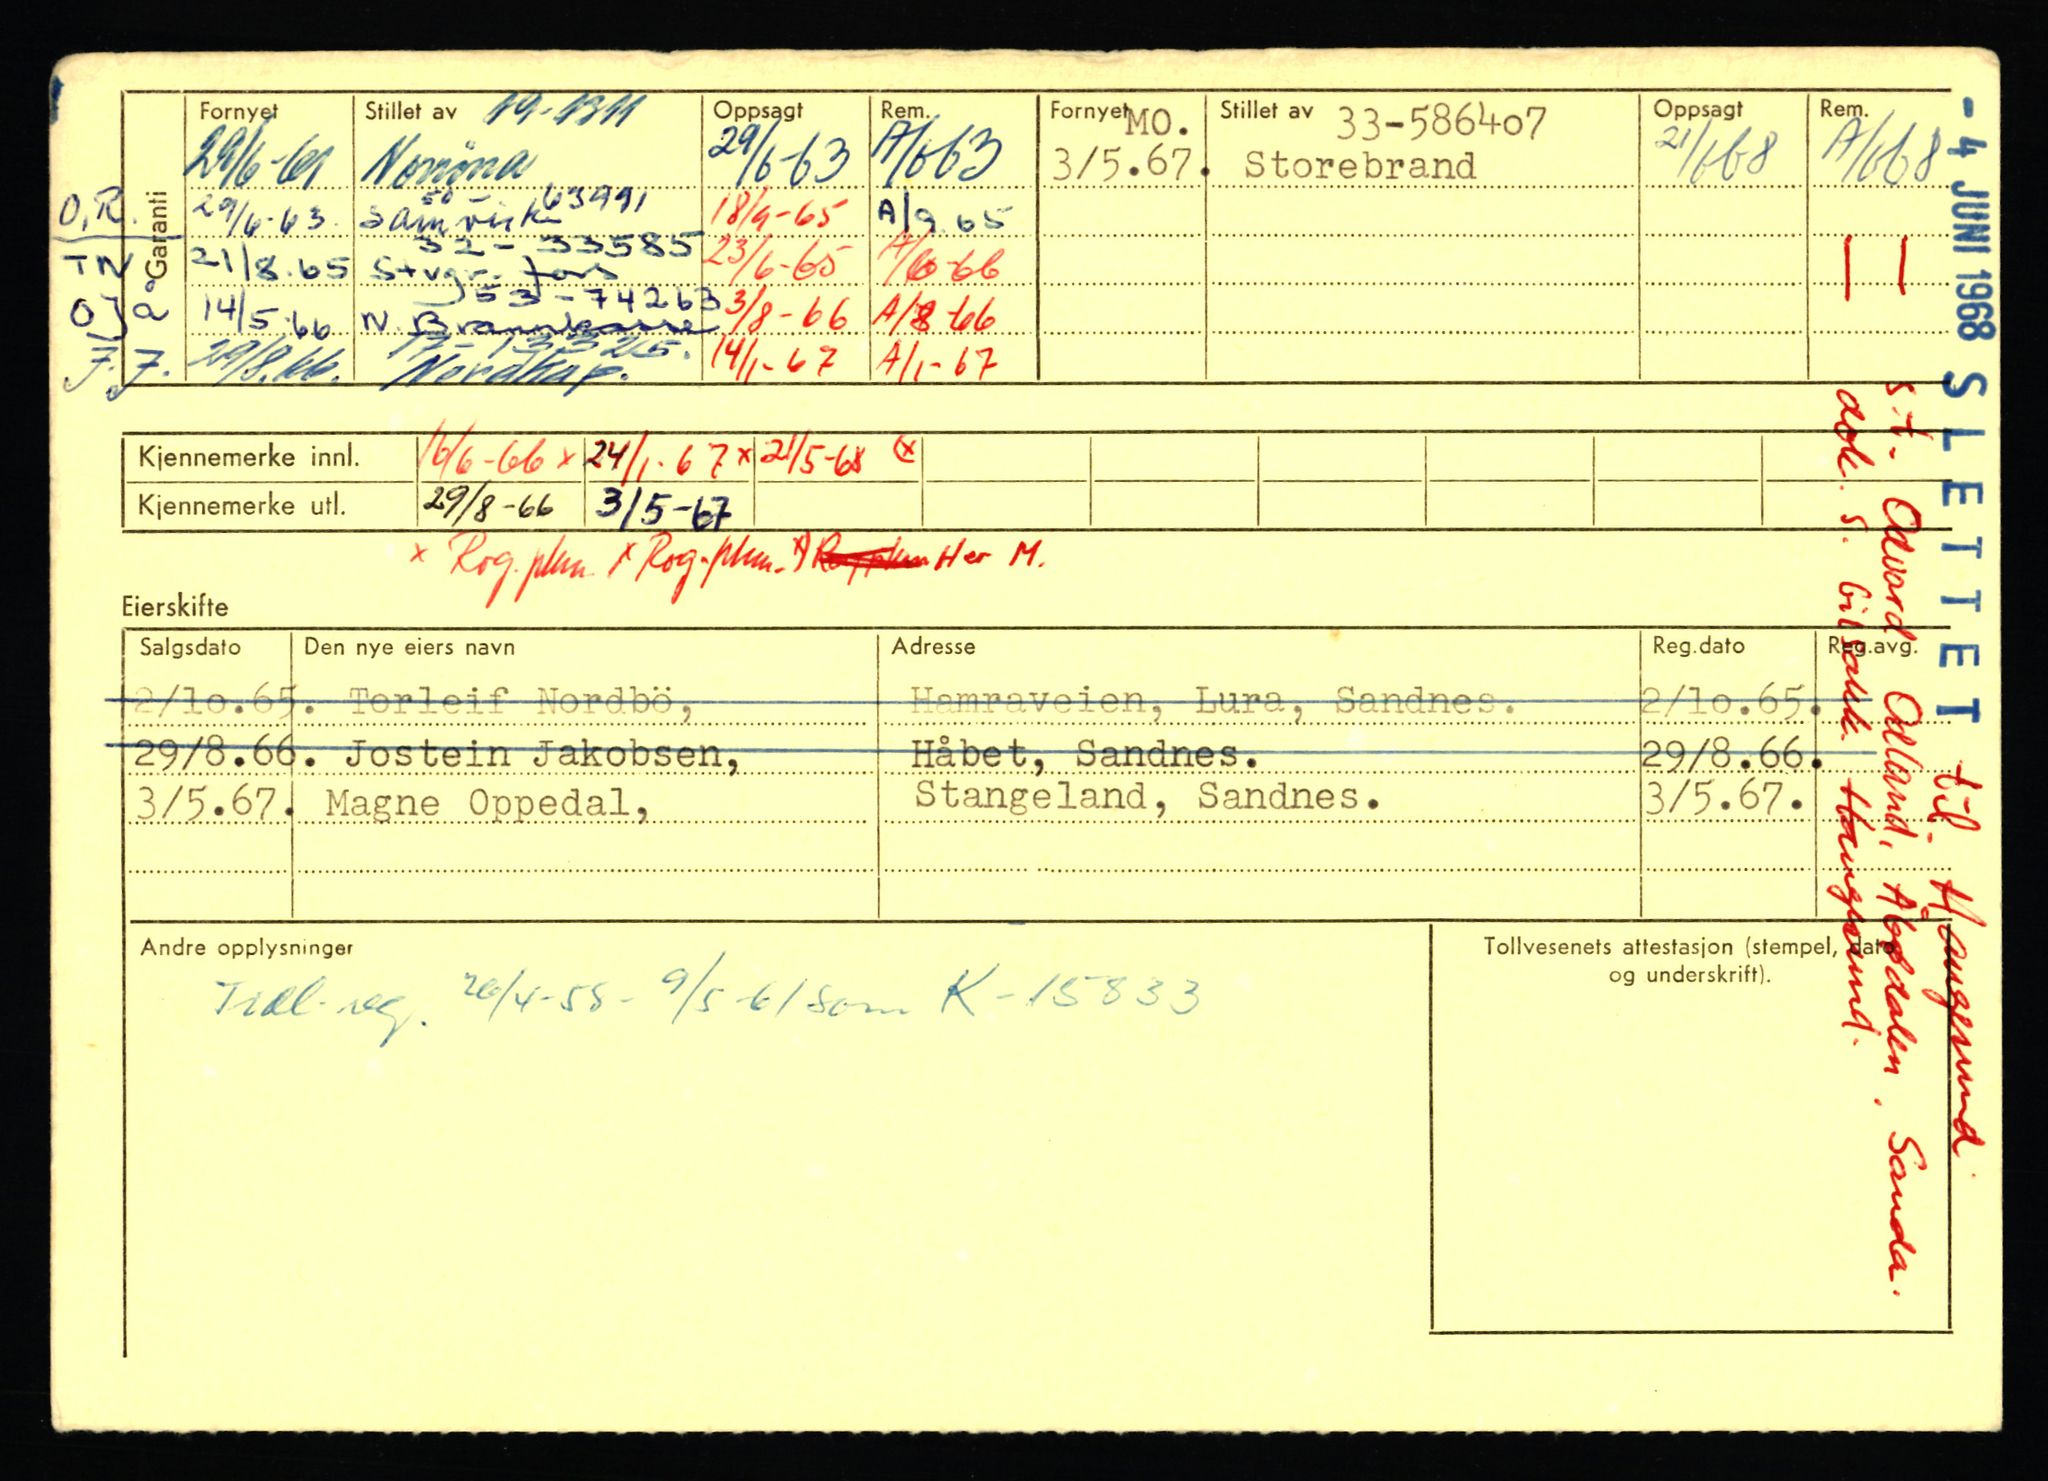 Fornyet Stillet av 19-1311 Oppsagt Rem. Fornyet MO. Stillet av 33-586407 Oppsagt Rem.
29/6-61 Norröna 29/6-63 A/6 63 3/5.67. Storebrand 21/6 68 A/6 68
Garanti
O.R. 29/6-63. Samvirke 50-63991 18/9-65 A/9 65
TN 21/8.65 Stvgr. fors 32-33585 23/6-65 A/6-66
OJ 14/5.66 N. Brannkasse 53-74263 3/8-66 A/8-66
J.J. 29/8.66. Nordkap. 14/1-67 A/1-67
Kjennemerke innl. 16/6-66 x 24/1-67 x 21/5-68 (x)
Kjennemerke utl. 29/8-66 3/5-67
x Rog. pkm. x Rog. pkm. x) Her M.
Eierskifte
Salgsdato Den nye eiers navn Adresse Reg.dato Reg.avg.
2/10.65. Torleif Nordbö, Hamraveien, Lura, Sandnes. 2/10.65.
29/8.66. Jostein Jakobsen, Håbet, Sandnes. 29/8.66.
3/5.67. Magne Oppedal, Stangeland, Sandnes. 3/5.67.
Andre opplysninger
Tidl. reg. 26/4-58 - 9/5-61 som K-15833
Tollvesenets attestasjon (stempel, dato
og underskrift).
- 4 JUNI 1968 SLETTET til Haugesund
s.t. Odvard Odland, Åbødalen, Sanda.
dok. s. bilsakk. Haugesund.